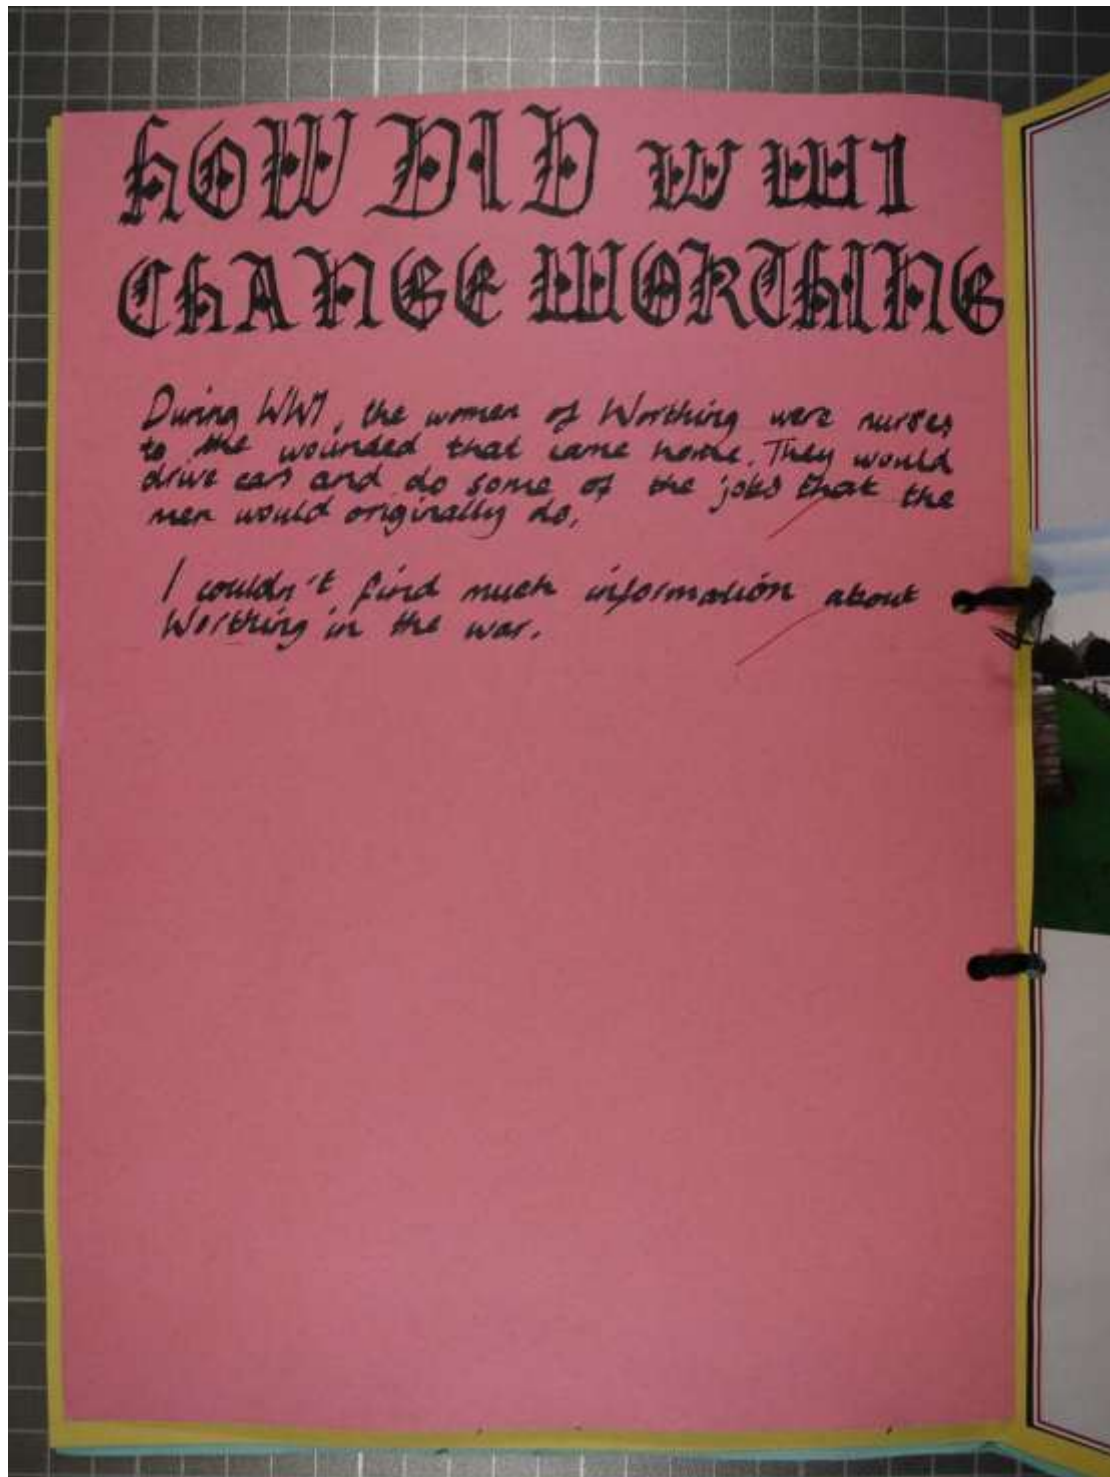 hOW DID WW1
ChANGE WORThING
During WW1, the women of Worthing were nurses
to the wounded that came home. They would
drive cars and do some of the jobs that the
men would originally do.
I couldn't find much information about
Worthing in the war.